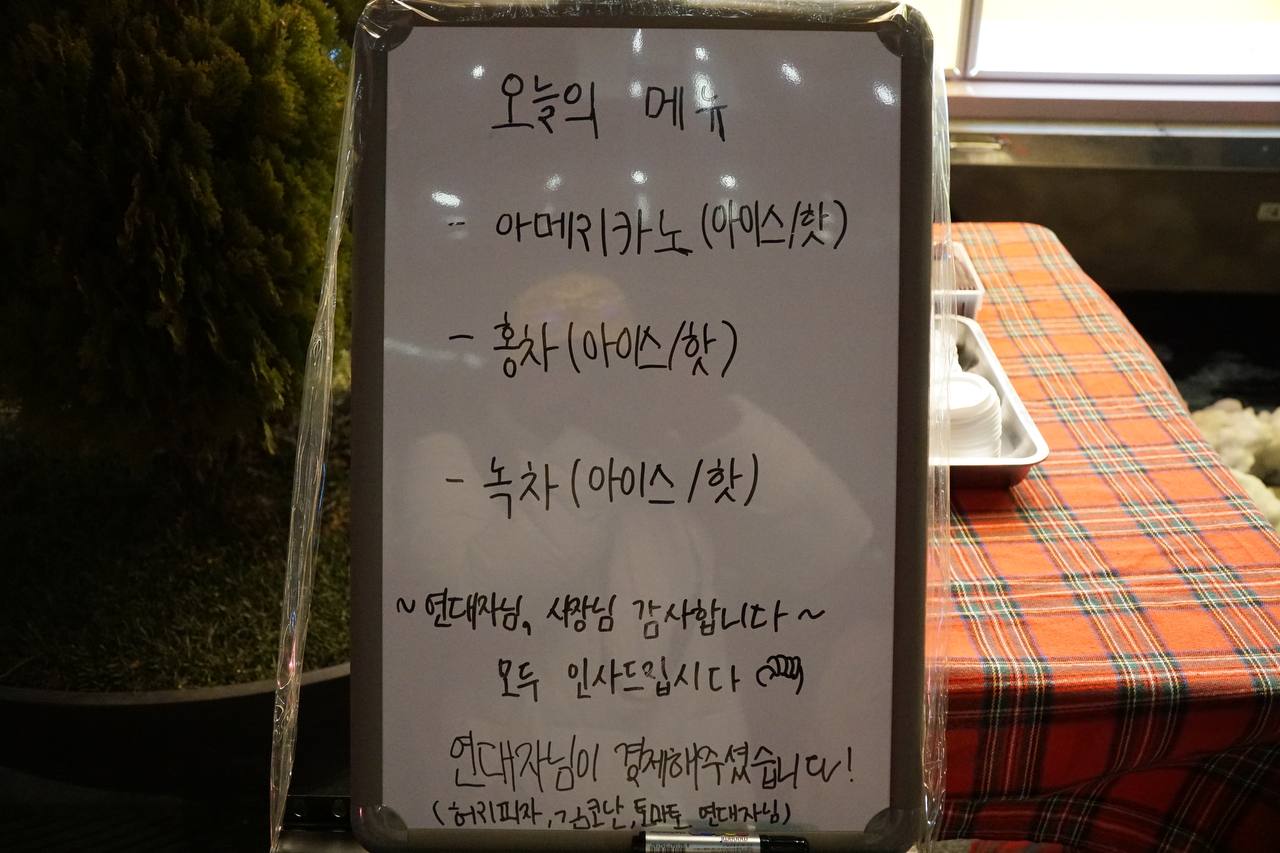 오늘의 메뉴
- 아메리카노 (아이스/핫)
- 홍차 (아이스/핫)
- 녹차 (아이스/핫)
~ 연대자님, 사장님 감사합니다 ~
모두 인사드립시다
연대자님이 결제해주셨습니다!
(허리피자, 김코난, 토마토 연대자님)